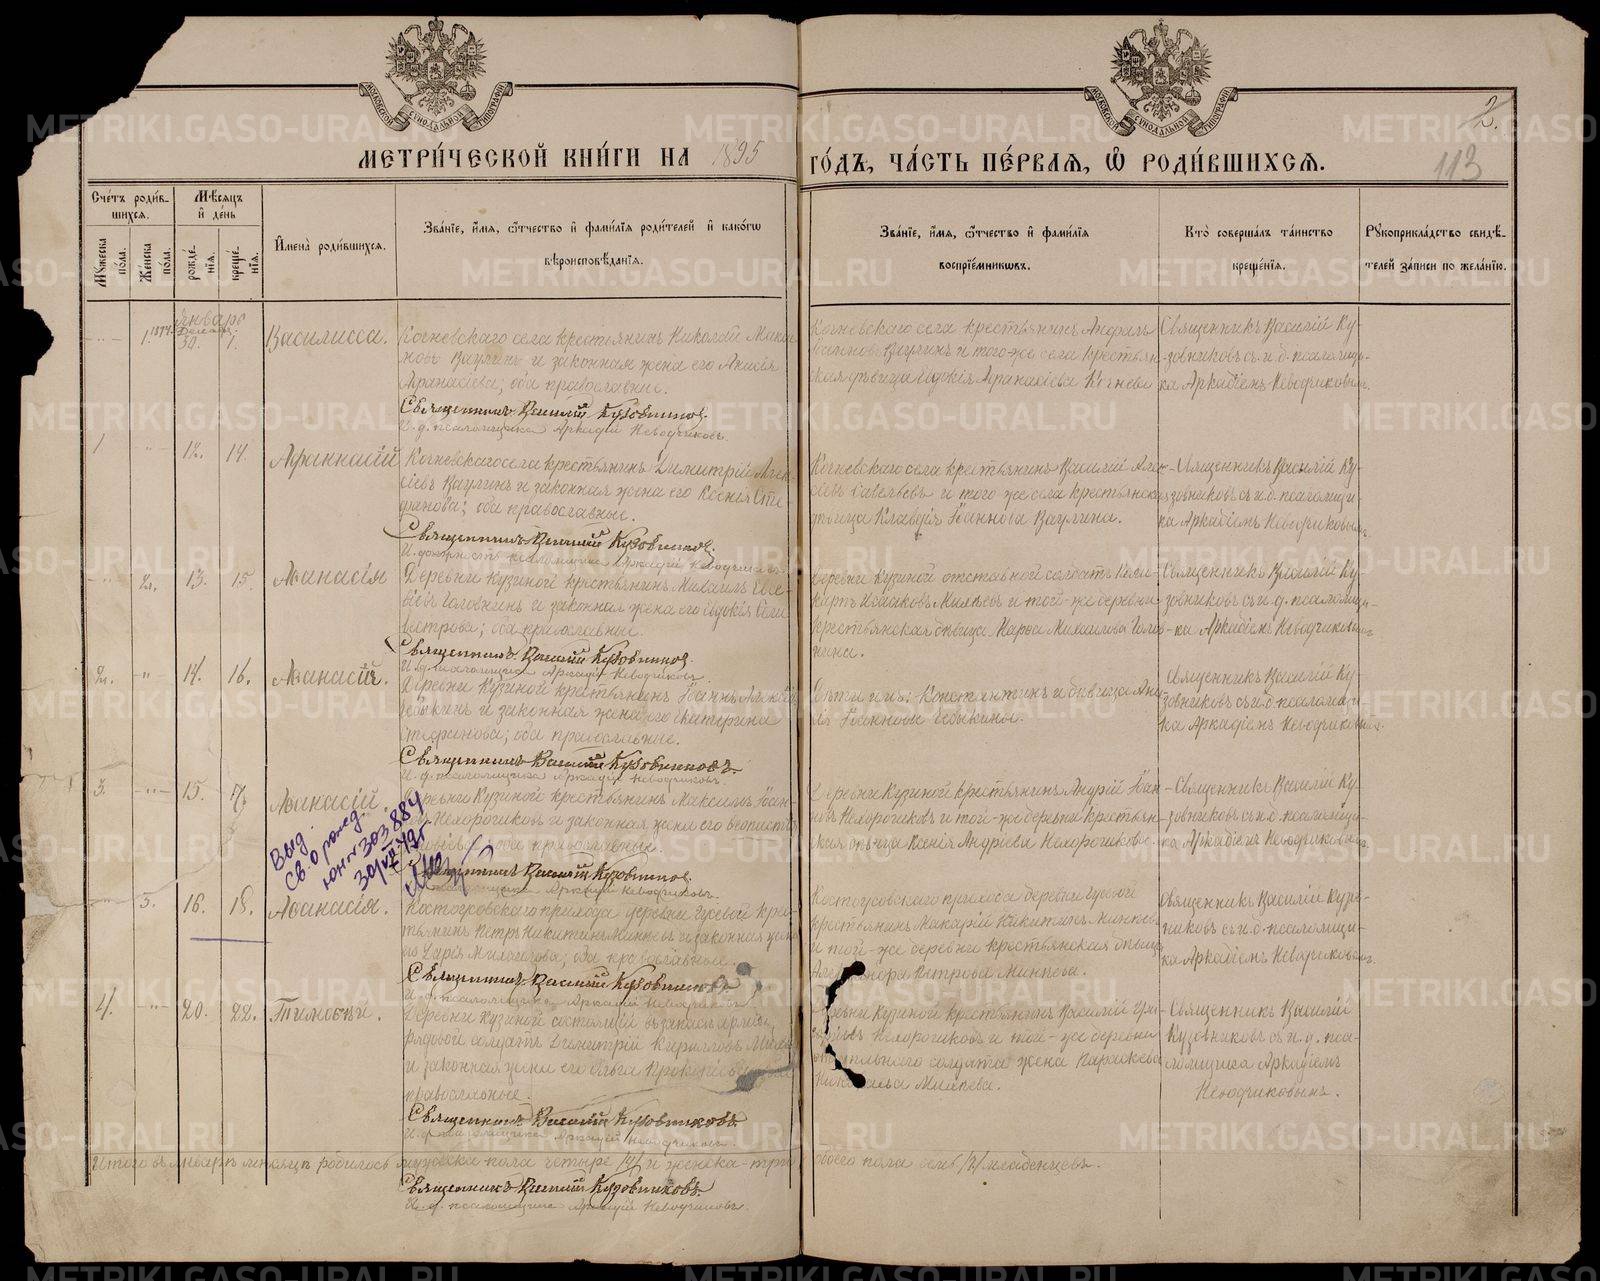 МОСКОВСКОЙ СѴНОДАЛЬНОЙ ТИПОГРАФІИ
МОСКОВСКОЙ СѴНОДАЛЬНОЙ ТИПОГРАФІИ
2.
МЕТРИ́ЧЕСКОЙ КНИ́ГИ НА 1895 ГО́ДЪ, ЧА́СТЬ ПЕ́РВАЯ, Ѽ РОДИ́ВШИХСЯ.
113
Сче́тъ роди́в-
шихся.
Мѣ́сяцъ
и҆ де́нь
Му́жеска по́ла.
Же́нска по́ла.
рожде́-нїя.
креще́-нїя.
И҆мена̀ роди́вшихся.
Зва́нїе, и҆́мя, ѻ҆́тчество и҆ фами́лїя роди́телей и҆ како́гѡ
вѣроисповѣ́данїя.
Зва́нїе, и҆́мя, ѻ҆́тчество и҆ фами́лїя
воспрїе́мниковъ.
Кто̀ соверша́лъ та́инство
креще́нїя.
Рꙋкоприкла́дство свидѣ́-
телей за́писи по жела́нїю.
Январь
1. 1894 Декабр. 30. 1. Василисса.
Кочневскаго села крестьянинъ Николай Макси-
мовъ Ваулинъ и законная жена его Анисія
Афанасіева; оба православные.
Священникъ Василій Кузовниковъ.
И. д. псаломщика Аркадій Неводчиковъ.
Кочневскаго села крестьянинъ Андрей
Ваулинъ и того-же села крестьян-
ская дѣвица Евдокія Афанасіева Кочнева
Священникъ Василій Ку-
зовниковъ съ и. д. псаломщи-
ка Аркадіемъ Неводчиковымъ.
1 12. 14. Афанасій
Кочневскаго села крестьянинъ Димитрій Алек-
сіевъ Ваулинъ и законная жена его Ксенія Сте-
фанова; оба православные.
Священникъ Василій Кузовниковъ.
И. должность псаломщика Аркадій Неводчиковъ.
Кочневскаго села крестьянинъ Василій
Савельевъ и того же села крестьянская
дѣвица Клавдія Іоаннова Ваулина.
Священникъ Василій Ку-
зовниковъ съ и. д. псаломщи-
ка Аркадіемъ Неводчиковымъ.
2. 13. 15. Аѳанасія
Деревни Кузиной крестьянинъ Михаилъ
Головинъ и законная жена его Евдокія Сели-
верстрова; оба православные.
Священникъ Василій Кузовниковъ.
И. д. псаломщика Аркадій Неводчиковъ.
Деревни Кузиной отставной солдатъ
Исааковъ Милѣевъ и той-же деревни
крестьянская дѣвица Марѳа Михаилова Голов-
нина.
Священникъ Василій Ку-
зовниковъ съ и. д. псаломщи-
ка Аркадіемъ Неводчиковымъ
2. 14. 16. Аѳанасій.
Деревни Кузиной крестьянинъ Іоаннъ
Чебыкинъ и законная жена его Екатерина
Стефанова; оба православные.
Священникъ Василій Кузовниковъ.
И. д. псаломщика Аркадій Неводчиковъ.
Дѣти ихъ: Константинъ и дѣвица Ан-
на Іоанновы Чебыкины.
Священникъ Василій Ку-
зовниковъ съ и. д. псаломщи-
ка Аркадіемъ Неводчиковымъ.
3. 15. 17. Аѳанасій.
Деревни Кузиной крестьянинъ Максимъ Іоан-
новъ Нехорошковъ и законная жена его
оба православные.
Священникъ Василій Кузовниковъ.
И. д. псаломщика Аркадій Неводчиковъ.
Деревни Кузиной крестьянинъ Андрій Іоан-
новъ Нехорошковъ и той-же деревни крестьян-
ская дѣвица Ксенія Андреева Нехорошкова.
Священникъ Василій Ку-
зовниковъ съ и. д. псаломщи-
ка Аркадіемъ Неводчиковымъ.
Выд.
Св. о рожд.
ЮН № 303884
30/VII 42г
3. 16. 18. Аѳанасія.
Костоусовскаго прихода деревни Гусевой крес-
тьянинъ Петръ Никитинъ Минѣевъ и законная жена
его Дарія; оба православные.
Священникъ Василій Кузовниковъ
И. д. псаломщика Аркадій Неводчиковъ
Костоусовскаго прихода деревни Гусевой
крестьянинъ Макарій Никитинъ Минѣевъ
и той-же деревни крестьянская дѣвица
Александра Петрова Минѣева.
Священникъ Василій Кузов-
никовъ съ и. д. псаломщи-
ка Аркадіемъ Неводчиковымъ.
4. 20. 22. Тимоѳей.
Деревни Кузиной состоящій въ запасѣ арміи
рядовой солдатъ Димитрій Кирилловъ
и законная жена его Ольга
православные.
Священникъ Василій Кузовниковъ
И. д. псаломщика Аркадій Неводчиковъ.
Деревни Кузиной крестьянинъ Василій
Нехорошковъ и той-же деревни
солдата жена Параскева
Милѣева.
Священникъ Василій
Кузовниковъ съ и. д. пса-
ломщика Аркадіемъ
Неводчиковымъ.
Итого въ январѣ мѣсяцѣ родилось мужеска пола четыре /4/ и женска-три обоего пола семь /7/ младенцевъ.
Священникъ Василій Кузовниковъ.
И. д. псаломщика Аркадій Неводчиковъ.
METRIKI.GASO-URAL.RU